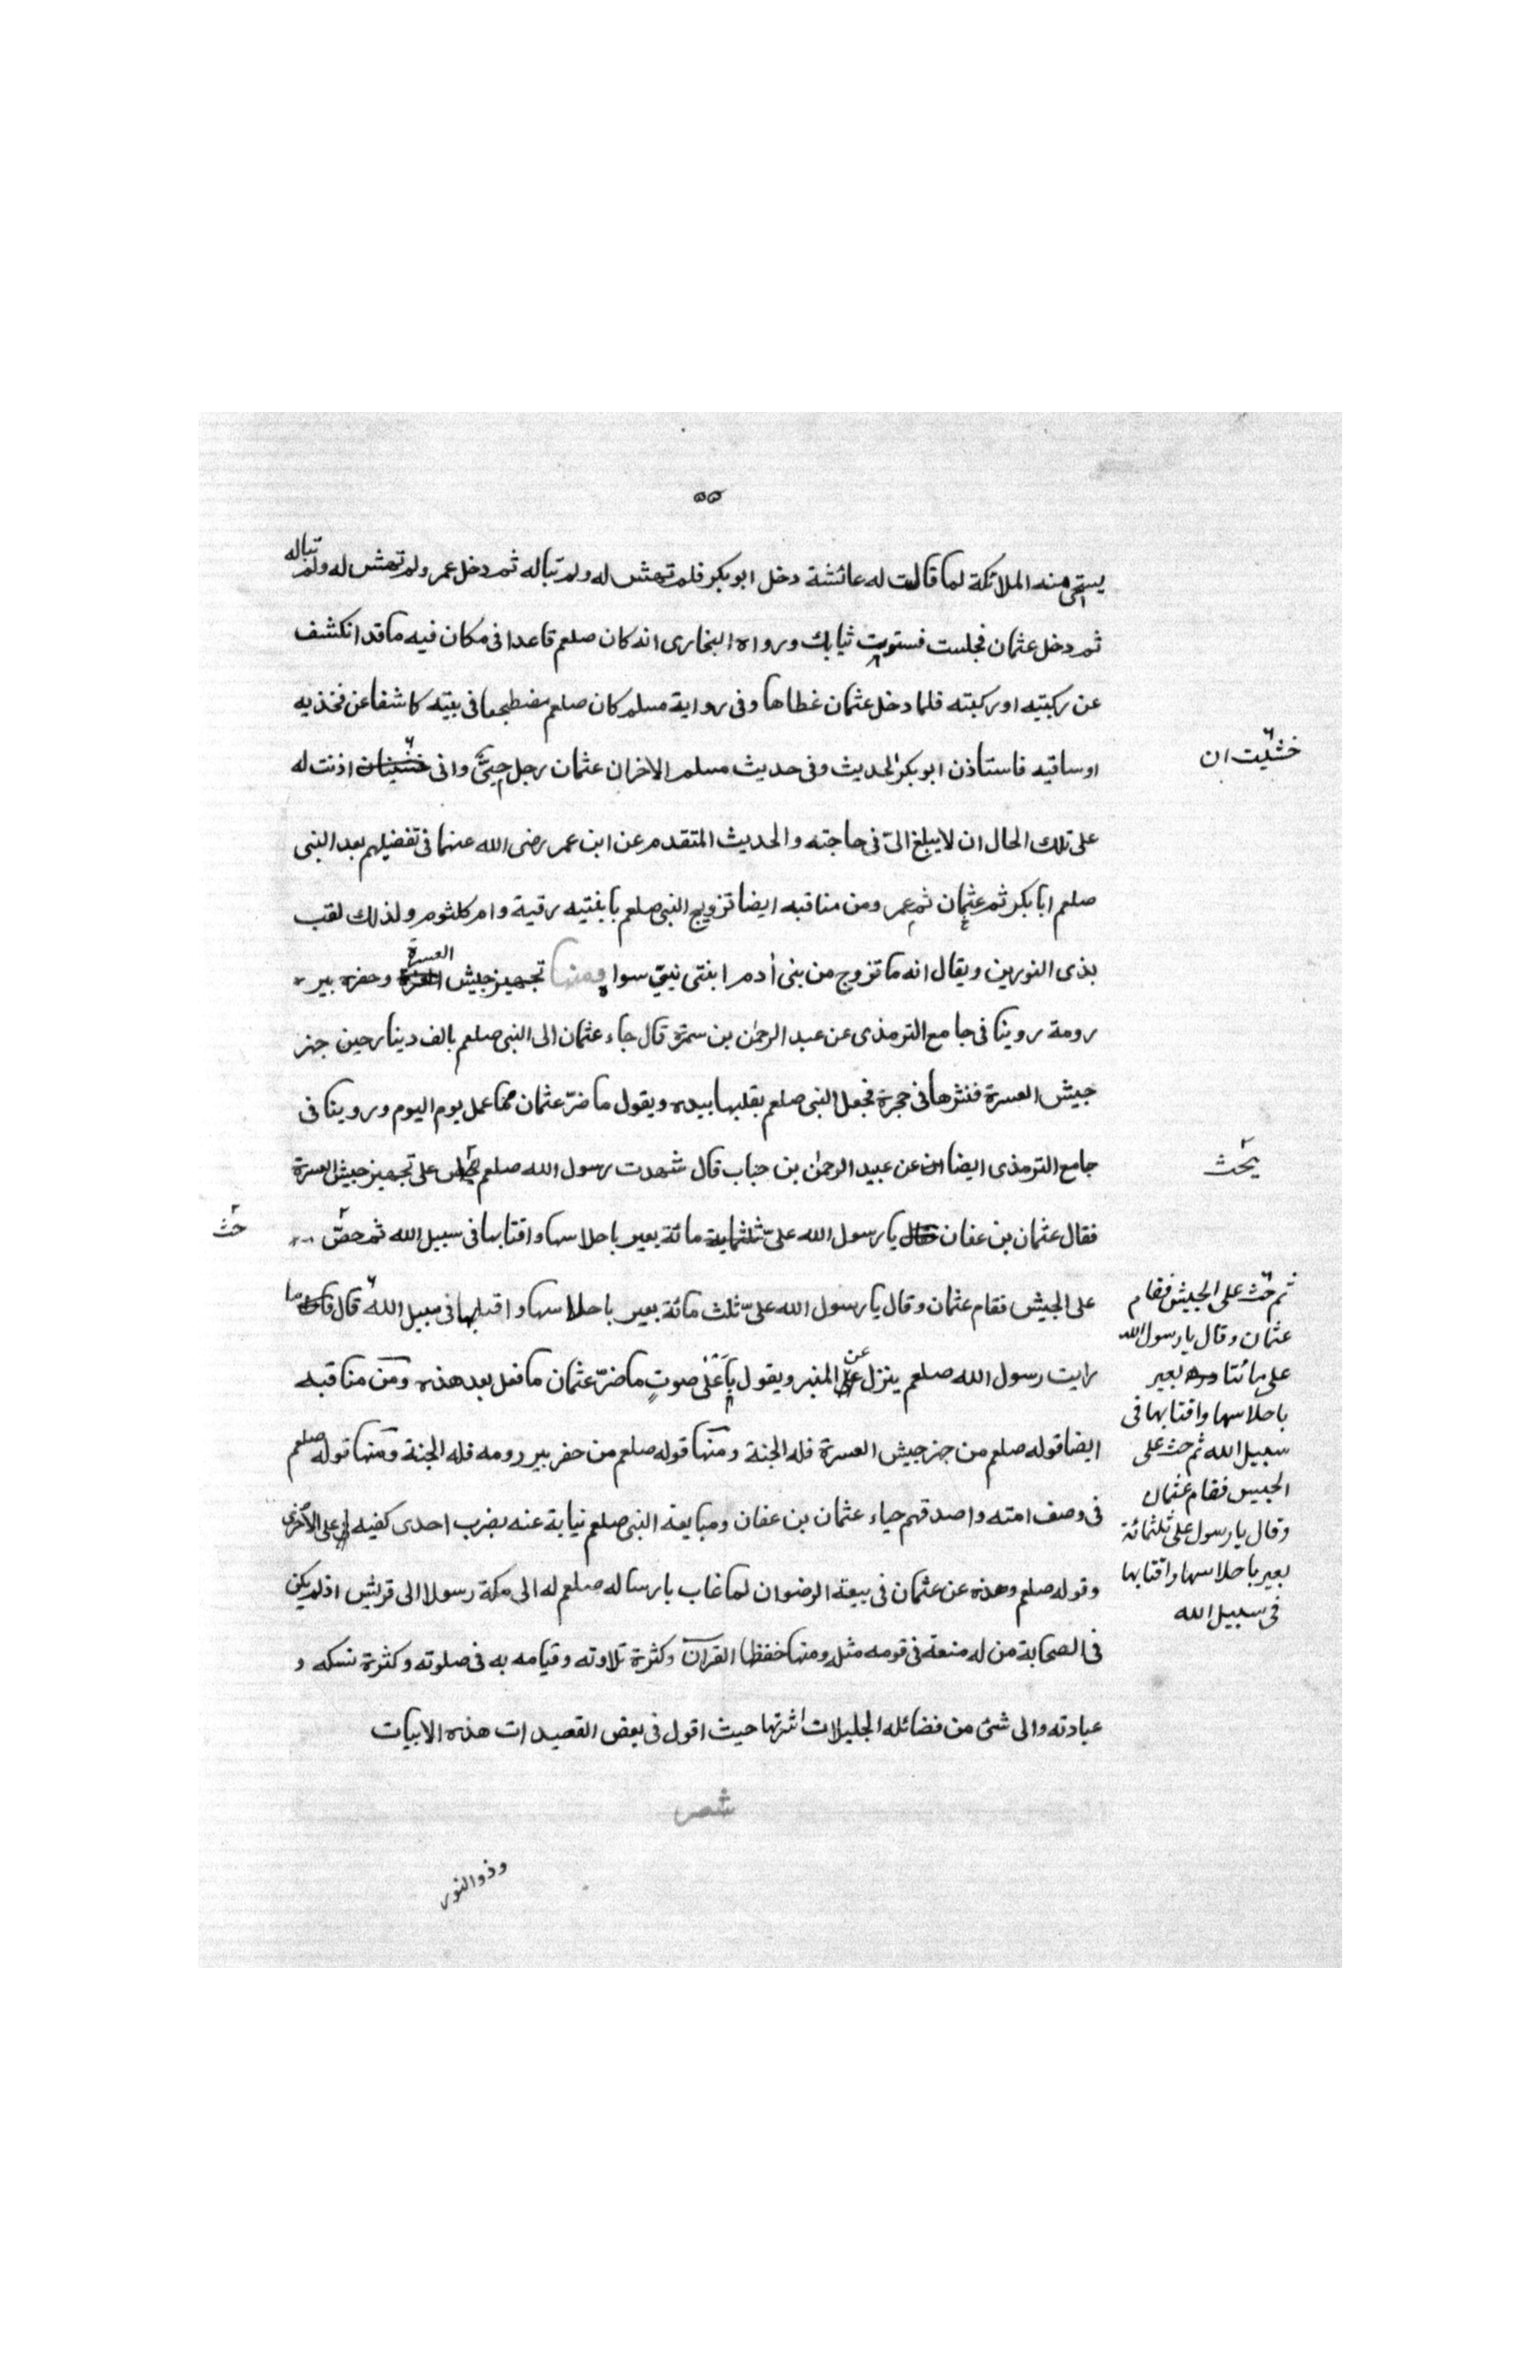 ٥٥
يستحي منه الملائكة لما قالت له عائشة دخل ابو بكر فلم تهتش له ولم تباله ثم دخل عمر ولم تهتش له ولم تباله
ثم دخل عثمان فجلست فسويت ثيابك ورواه البخارى انه كان صلعم قاعدا فى مكان فيه ما قد انكشف
عن ركبتيه او ركبته فلما دخل عثمان غطاها وفى رواية مسلم كان صلعم مضطجعا فى بيته كاشفا عن فخذيه
او ساقيه فاستاذن ابو بكر الحديث وفى حديث مسلم الاخران عثمان رجل حيىّ وانى اذنت له
خشيت ان
على تلك الحال ان لا يبلغ الىّ فى حاجته والحديث المتقدم عن ابن عمر رضى الله عنهما فى تفضيلهم بعد النبى
صلعم ابا بكر ثم عثمان ثم عمر ومن مناقبه ايضا تزويج النبى صلعم بابنتيه رقية وام كلثوم ولذلك لقب
بذى النورين ويقال انه ما تزوج من بنى أدم ابنتى نبىّ سواه ومنها تجهيز جيش العسرة وحفره بير
رومة روينا فى جامع الترمذى عن عبد الرحمن بن سمرة قال جاء عثمان الى النبى صلعم بالف دينار حين جهز
جيش العسرة فنثرها فى حجرة فجعل النبى صلعم يقلبها بيده ويقول ما ضرّ عثمان مما عمل يوم اليوم وروينا فى
جامع الترمذى ايضا عن عبيد الرحمن بن خباب قال شهدت رسول الله صلعم على تجهيز جيش العسرة
يحث
فقال عثمان بن عفان يا رسول الله علىّ مائة بعير باحلاسها واقتابها فى سبيل الله ثم حضّ
حث
على الجيش فقام عثمان وقال يا رسول الله علىّ ثلث مائة بعير باحلاسها واقتابها فى سبيل الله قال ما
رايت رسول الله صلعم ينزل عن المنبر ويقول باَعْلى صوتٍ ما ضرّ عثمان ما فعل بعد هذه ومن مناقبه
ايضا قوله صلعم من جهز جيش العسرة فله الجنة ومنها قوله صلعم من حفر بير رومه فله الجنة ومنها قوله صلعم
فى وصف امته واصدقهم حياء عثمان بن عفان ومبايعة النبى صلعم نيابة عنه بضرب احدى كفيه على الأخرى
وقوله صلعم وهذه عن عثمان فى بيعة الرضوان لما غاب بارساله صلعم له الى مكة رسولا الى قريش اذ لم يكن
فى الصحابة من له منعة فى قومه مثله ومنها حفظه القرآن وكثرة تلاوته وقيامه به فى صلوته وكثرة نسكه و
عبادته والى شئ من فضائله الجليلات اشرتها حيث اقول فى بعض القصيدات هذه الابيات
شعر
وذو النور
ثم حث على الجيش فقام
عثمان وقال يا رسول الله
على مائتا بعير
باحلاسها واقتابها فى
سبيل الله ثم حث على
الجيس فقام عثمان
وقال يا رسول على ثلثمائة
بعير باحلاسها واقتابها
فى سبيل الله